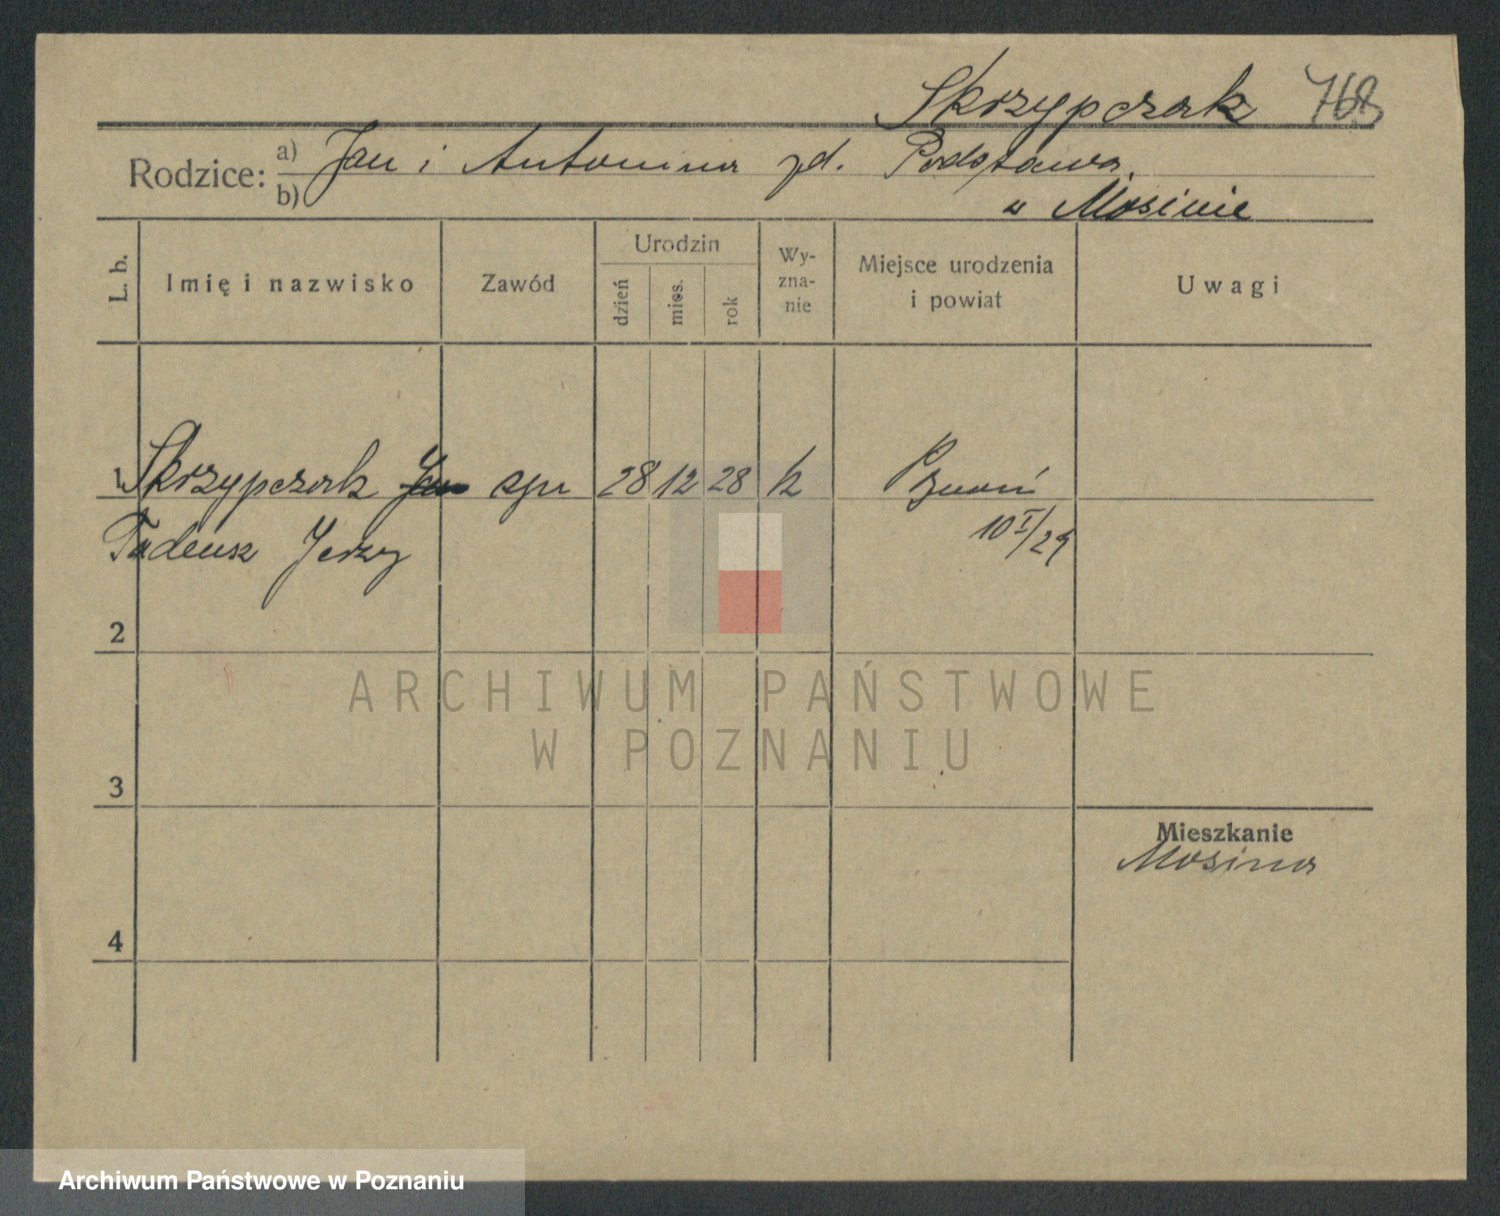 Skrzypczak 768
Rodzice: a) Jan i Antonina zd. Podstawa
b) w Mosinie
L. b. Imię i nazwisko Zawód Urodzin dzień mies. rok Wyznanie Miejsce urodzenia i powiat Uwagi
1 Skrzypczak Jan syn 28 12 28 k Poznań
Tadeusz Jerzy 10 I/29
2
ARCHIWUM PAŃSTWOWE
W POZNANIU
3
Mieszkanie
Mosina
4
Archiwum Państwowe w Poznaniu